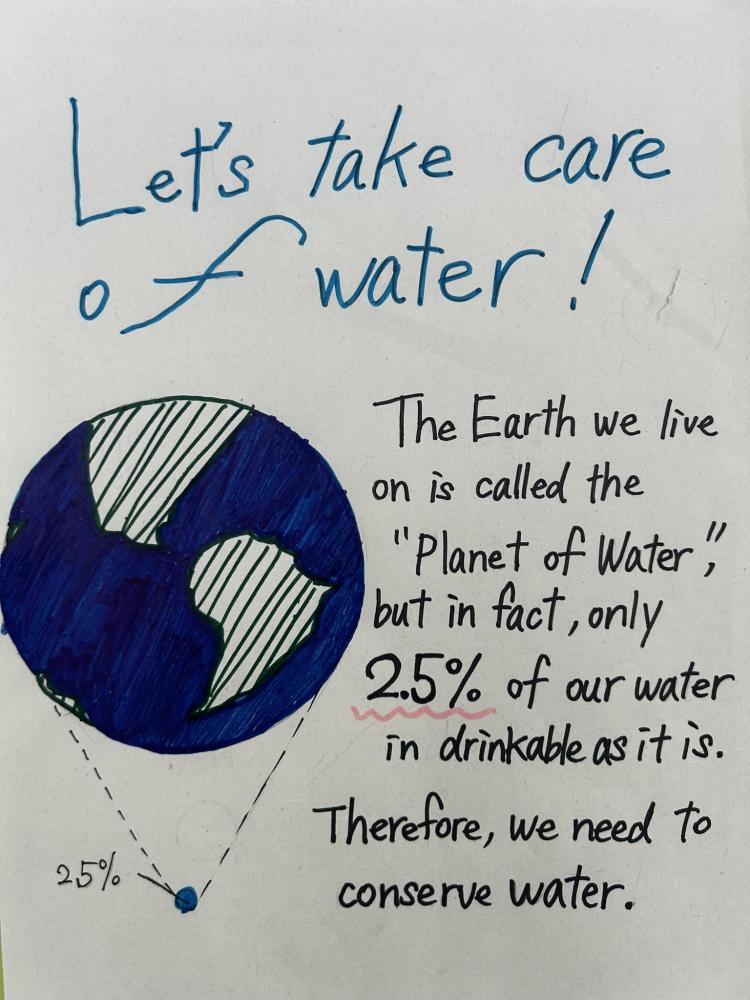 Let's take care
of water!
The Earth we live
on is called the
"Planet of Water",
but in fact, only
2.5% of our water
in drinkable as it is.
Therefore, we need to
conserve water.
2.5%